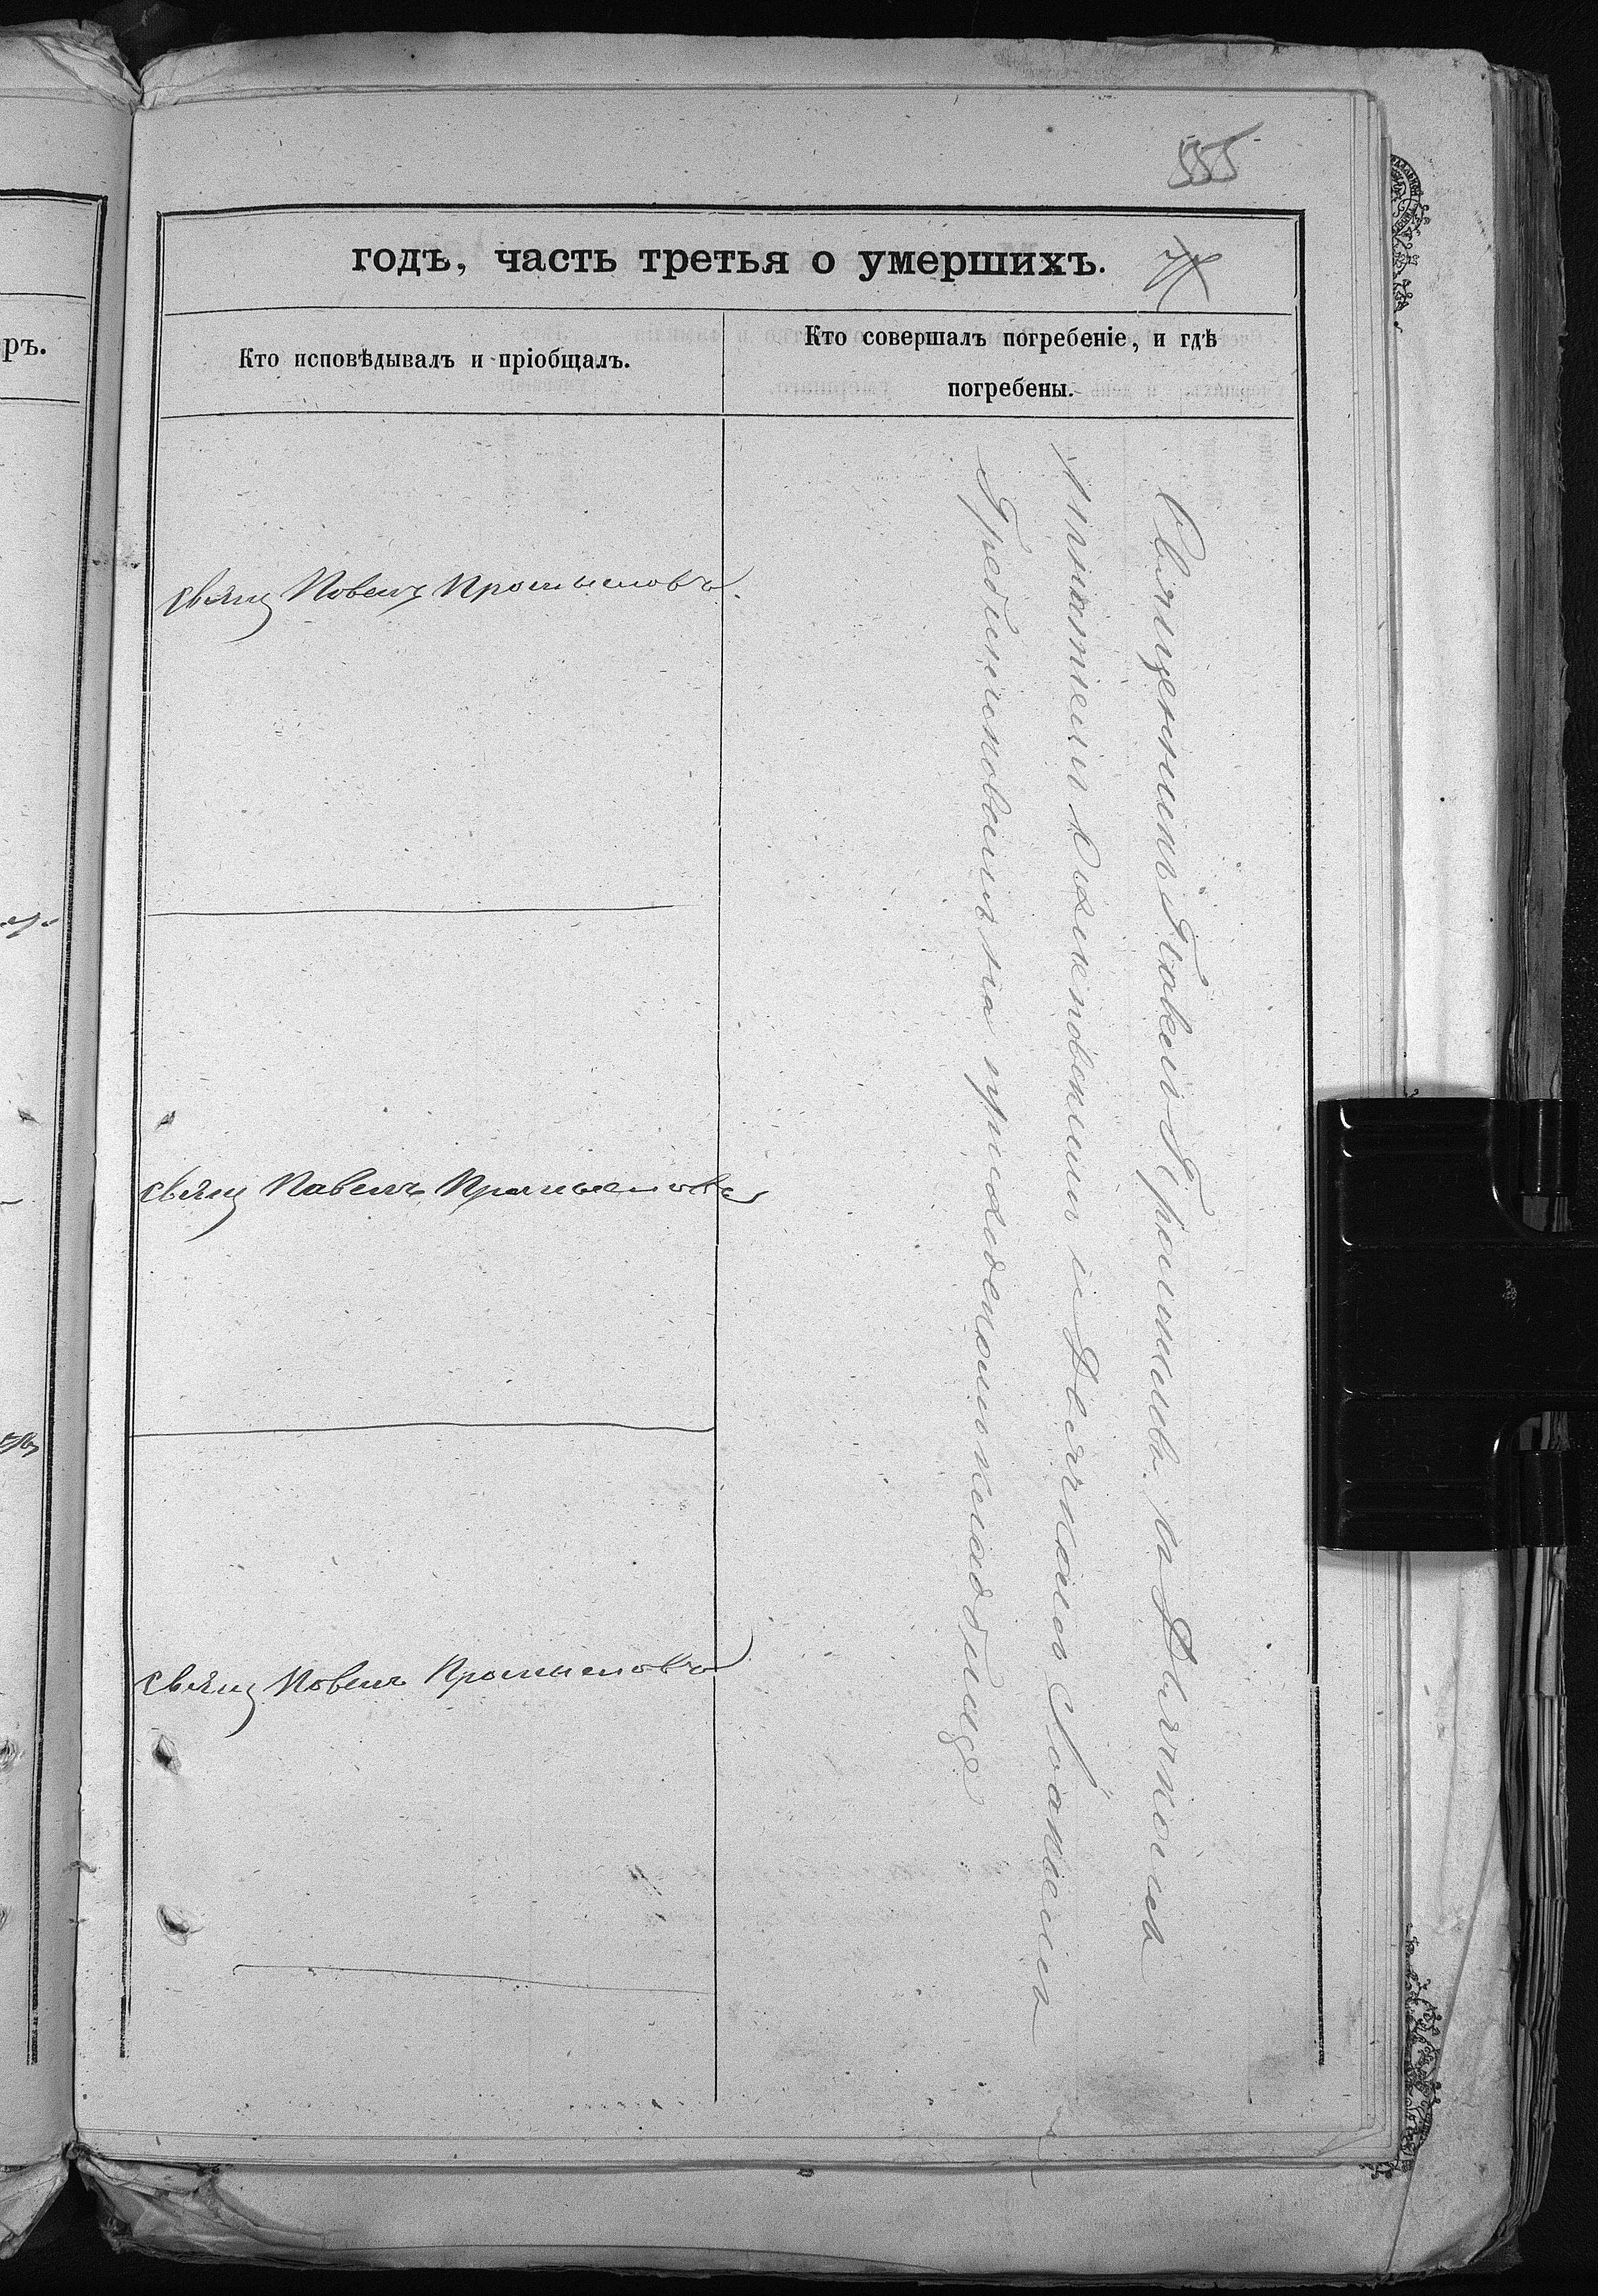 555
годъ, часть третья о умершихъ.
Кто исповѣдывалъ и пріобщалъ.
Кто совершалъ погребеніе, и гдѣ
погребены.
ръ.
Свящ Павелъ Промысловъ.
Свящ Павелъ Промысловъ
Свящ Павелъ Промысловъ
Священникъ Павелъ Промысловъ съ Дьячкомъ
и Дьячкомъ Іоанномъ
на приходскомъ кладбище